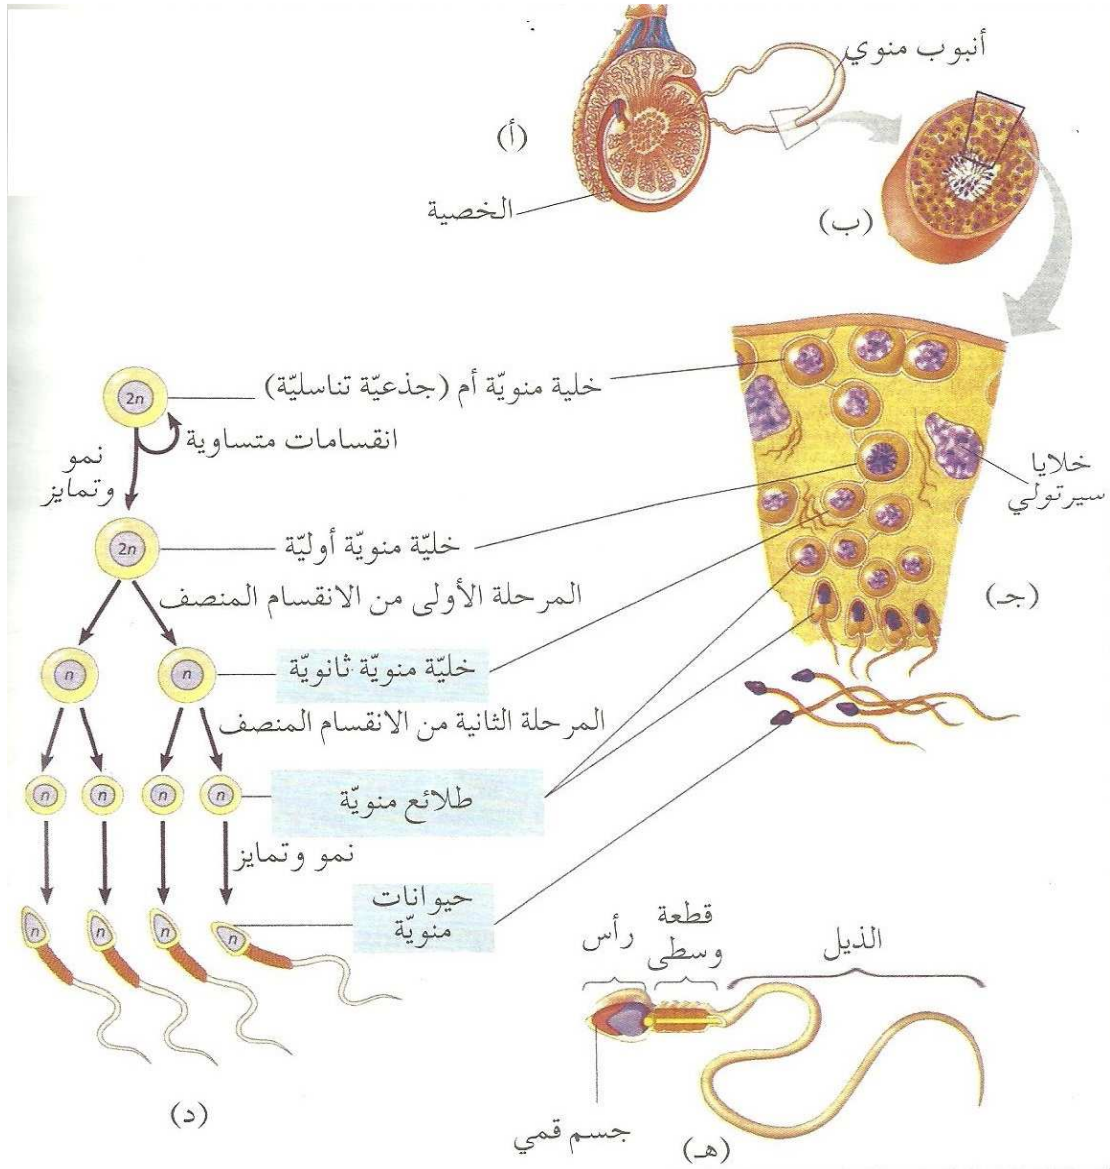 أنبوب منوي
(أ)
الخصية
(ب)
خلية منويّة أم (جذعيّة تناسليّة)
2n
انقسامات متساوية
نمو
وتمايز
خلايا
سيرتولي
خليّة منويّة أوليّة
2n
المرحلة الأولى من الانقسام المنصف
(جـ)
خليّة منويّة ثانويّة
n
n
المرحلة الثانية من الانقسام المنصف
طلائع منويّة
n
n
n
n
نمو وتمايز
حيوانات
منويّة
n
n
n
n
رأس
قطعة
وسطى
الذيل
جسم قمي
(د)
(هـ)